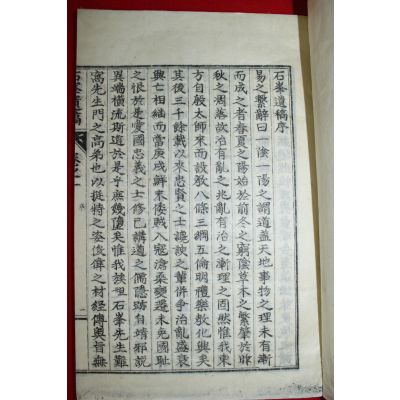 石峯遺稿序
易之繫辭曰一陰一陽之謂道盖天地事物之理未有漸
而成之者春夏之陽始於前冬之窮陰草木之繁肇於昨
秋之凋落故治有亂之兆亂有治之漸理之固然惟我東
方自殷太師來而設敎八條三綱五倫明禮樂敎化興矣
其後三千餘載以來忠賢之士讜諛之輩併爭治亂盛衰
興亡相繼而當庚戌鮮末倭賊入寇滄桑變遷未免國耻
之恨於是愛國忠義之士修己講道之儒隱跡自靖邪說
異端橫流斯道於是乎無幾墮矣惟我族祖石峯先生難
窩先生門之高弟也以挺特之姿俊偉之材經傳奧旨無
石峯遺稿
卷之一
序